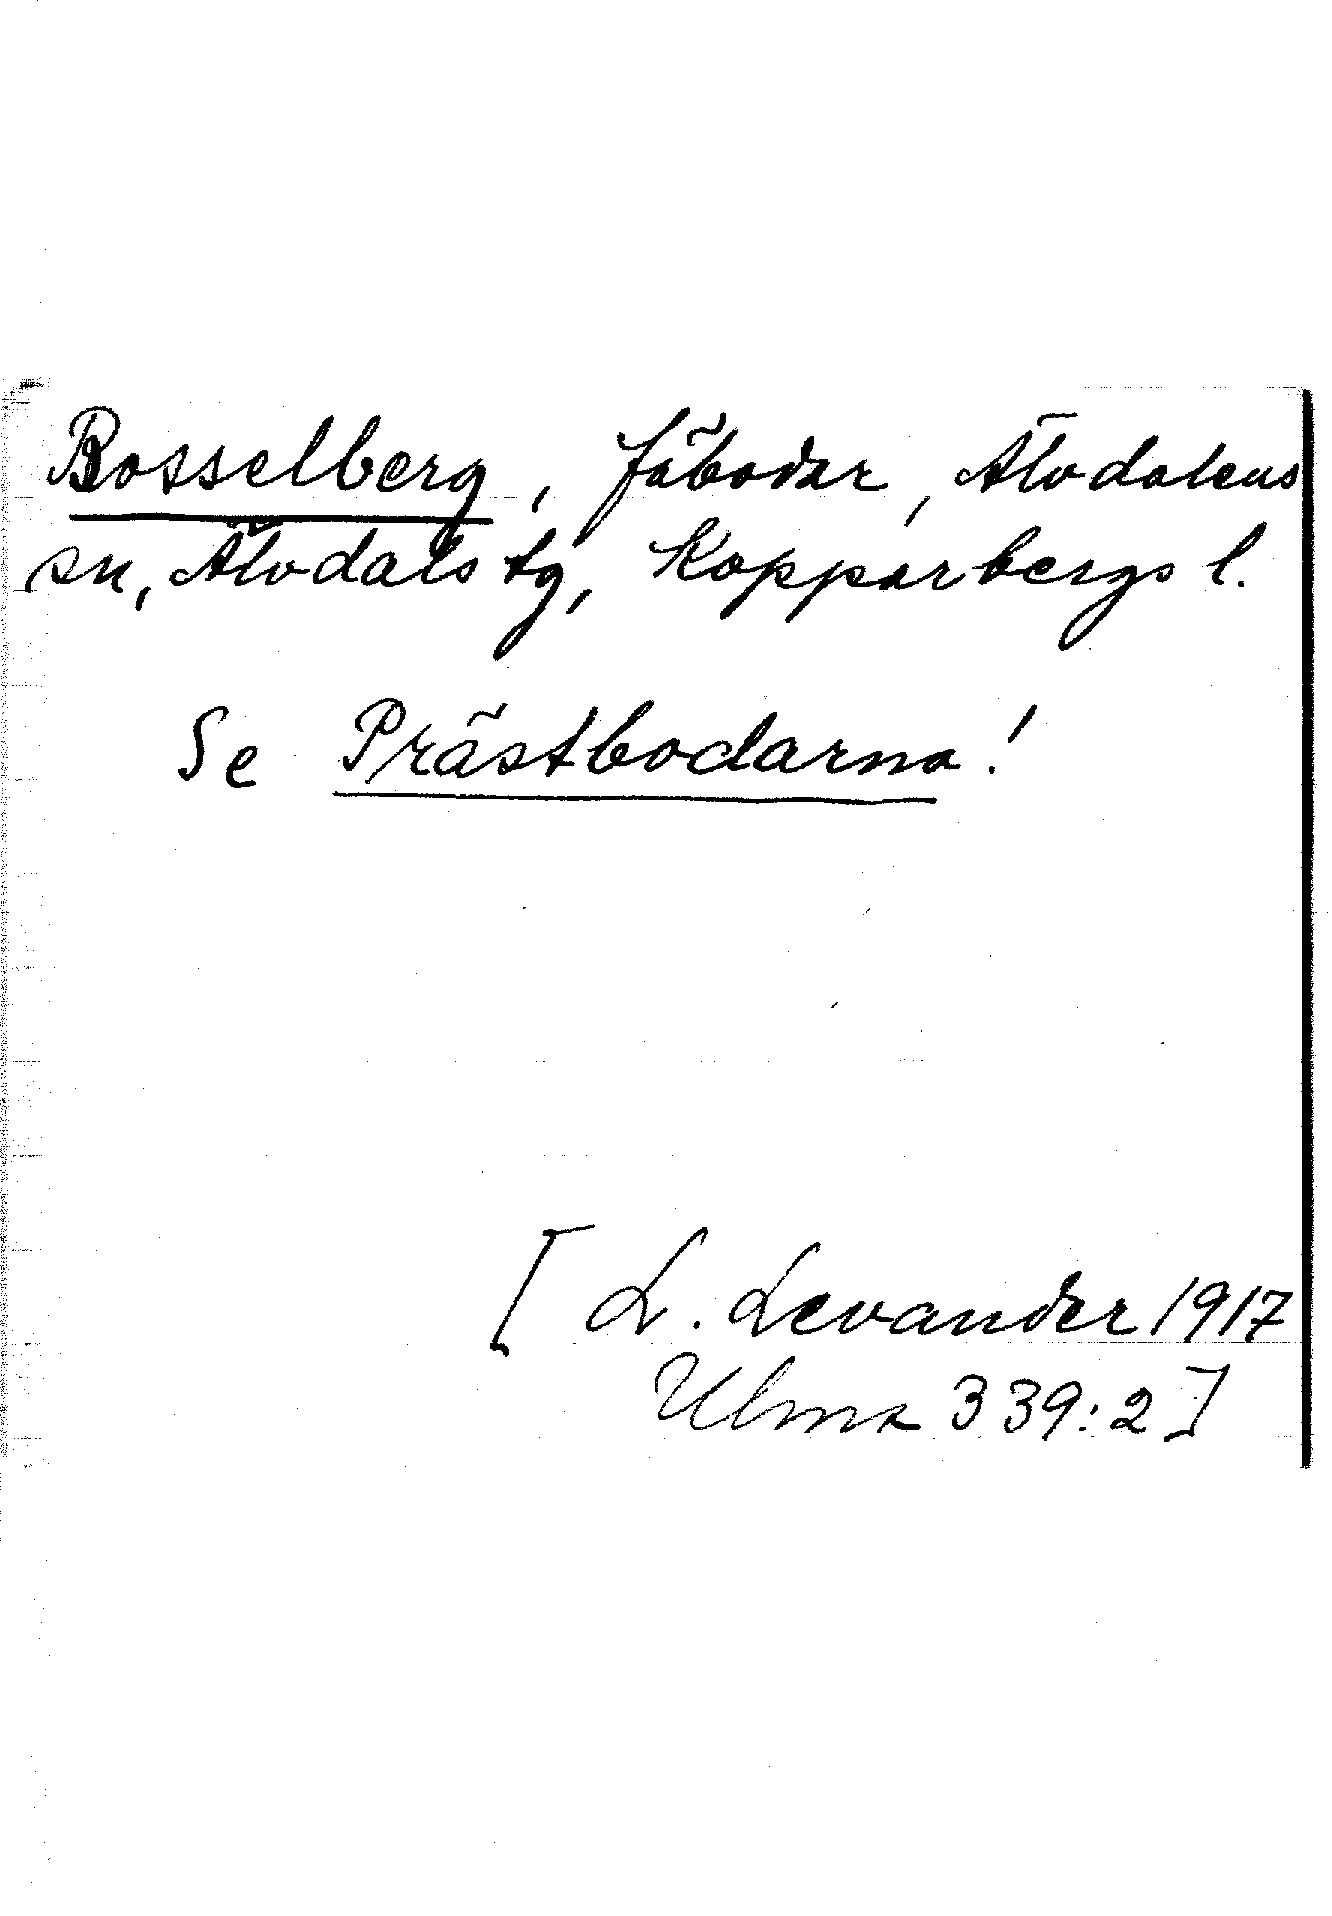 Bosselberg, fäbodar, Älvdalens
sn, Älvdals tg, Kopparbergs l.
Se Prästbodarna!
[L. Levander 1917
Ulma 339:2]